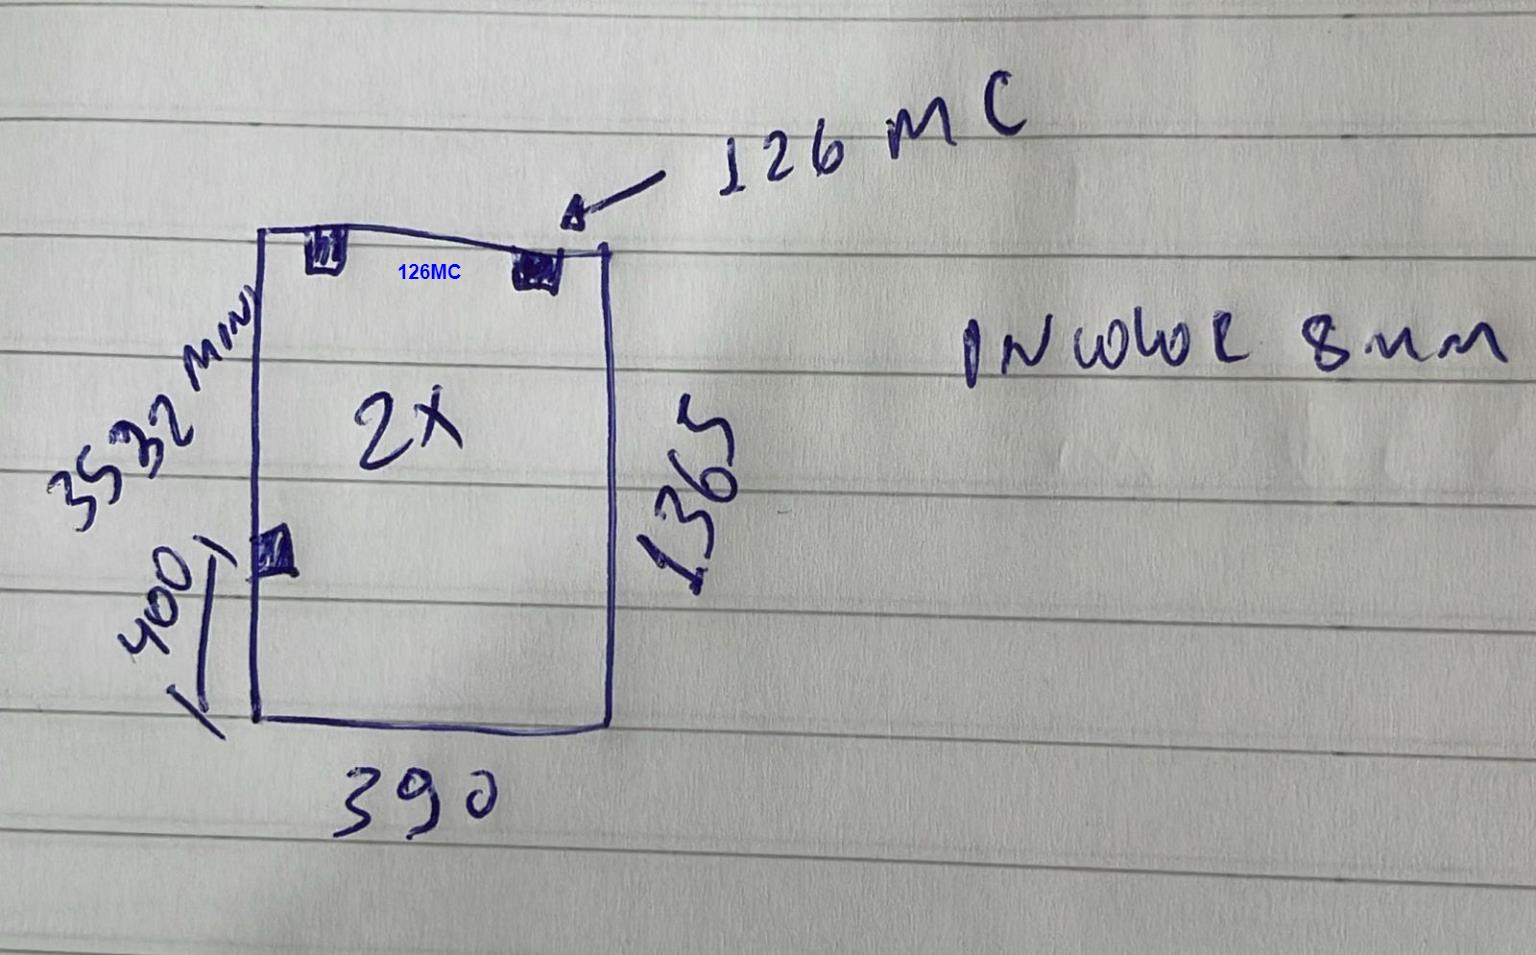 126 MC
126MC
INCOLOR 8mm
3532 MINI
2X
1365
400
390